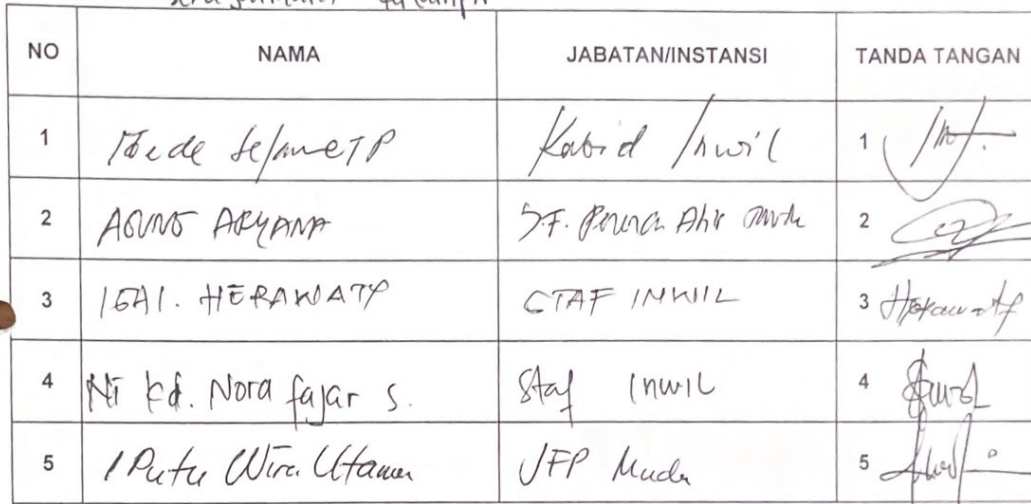 NO NAMA JABATAN/INSTANSI TANDA TANGAN
1 Made SelameTP Kabid Inwil 1
2 AGUNG ARYANA J.F. Perenca Ahli Muda 2
3 IGAI. HERAWATY STAF INWIL 3 Herawaty
4 Ni Kd. Nora fajar S. Staf Inwil 4
5 I Putu Wira Utama JFP Muda 5